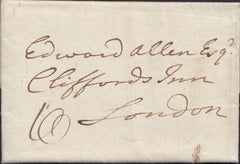 Edward Allen Esqr
Cliffords Inn
London